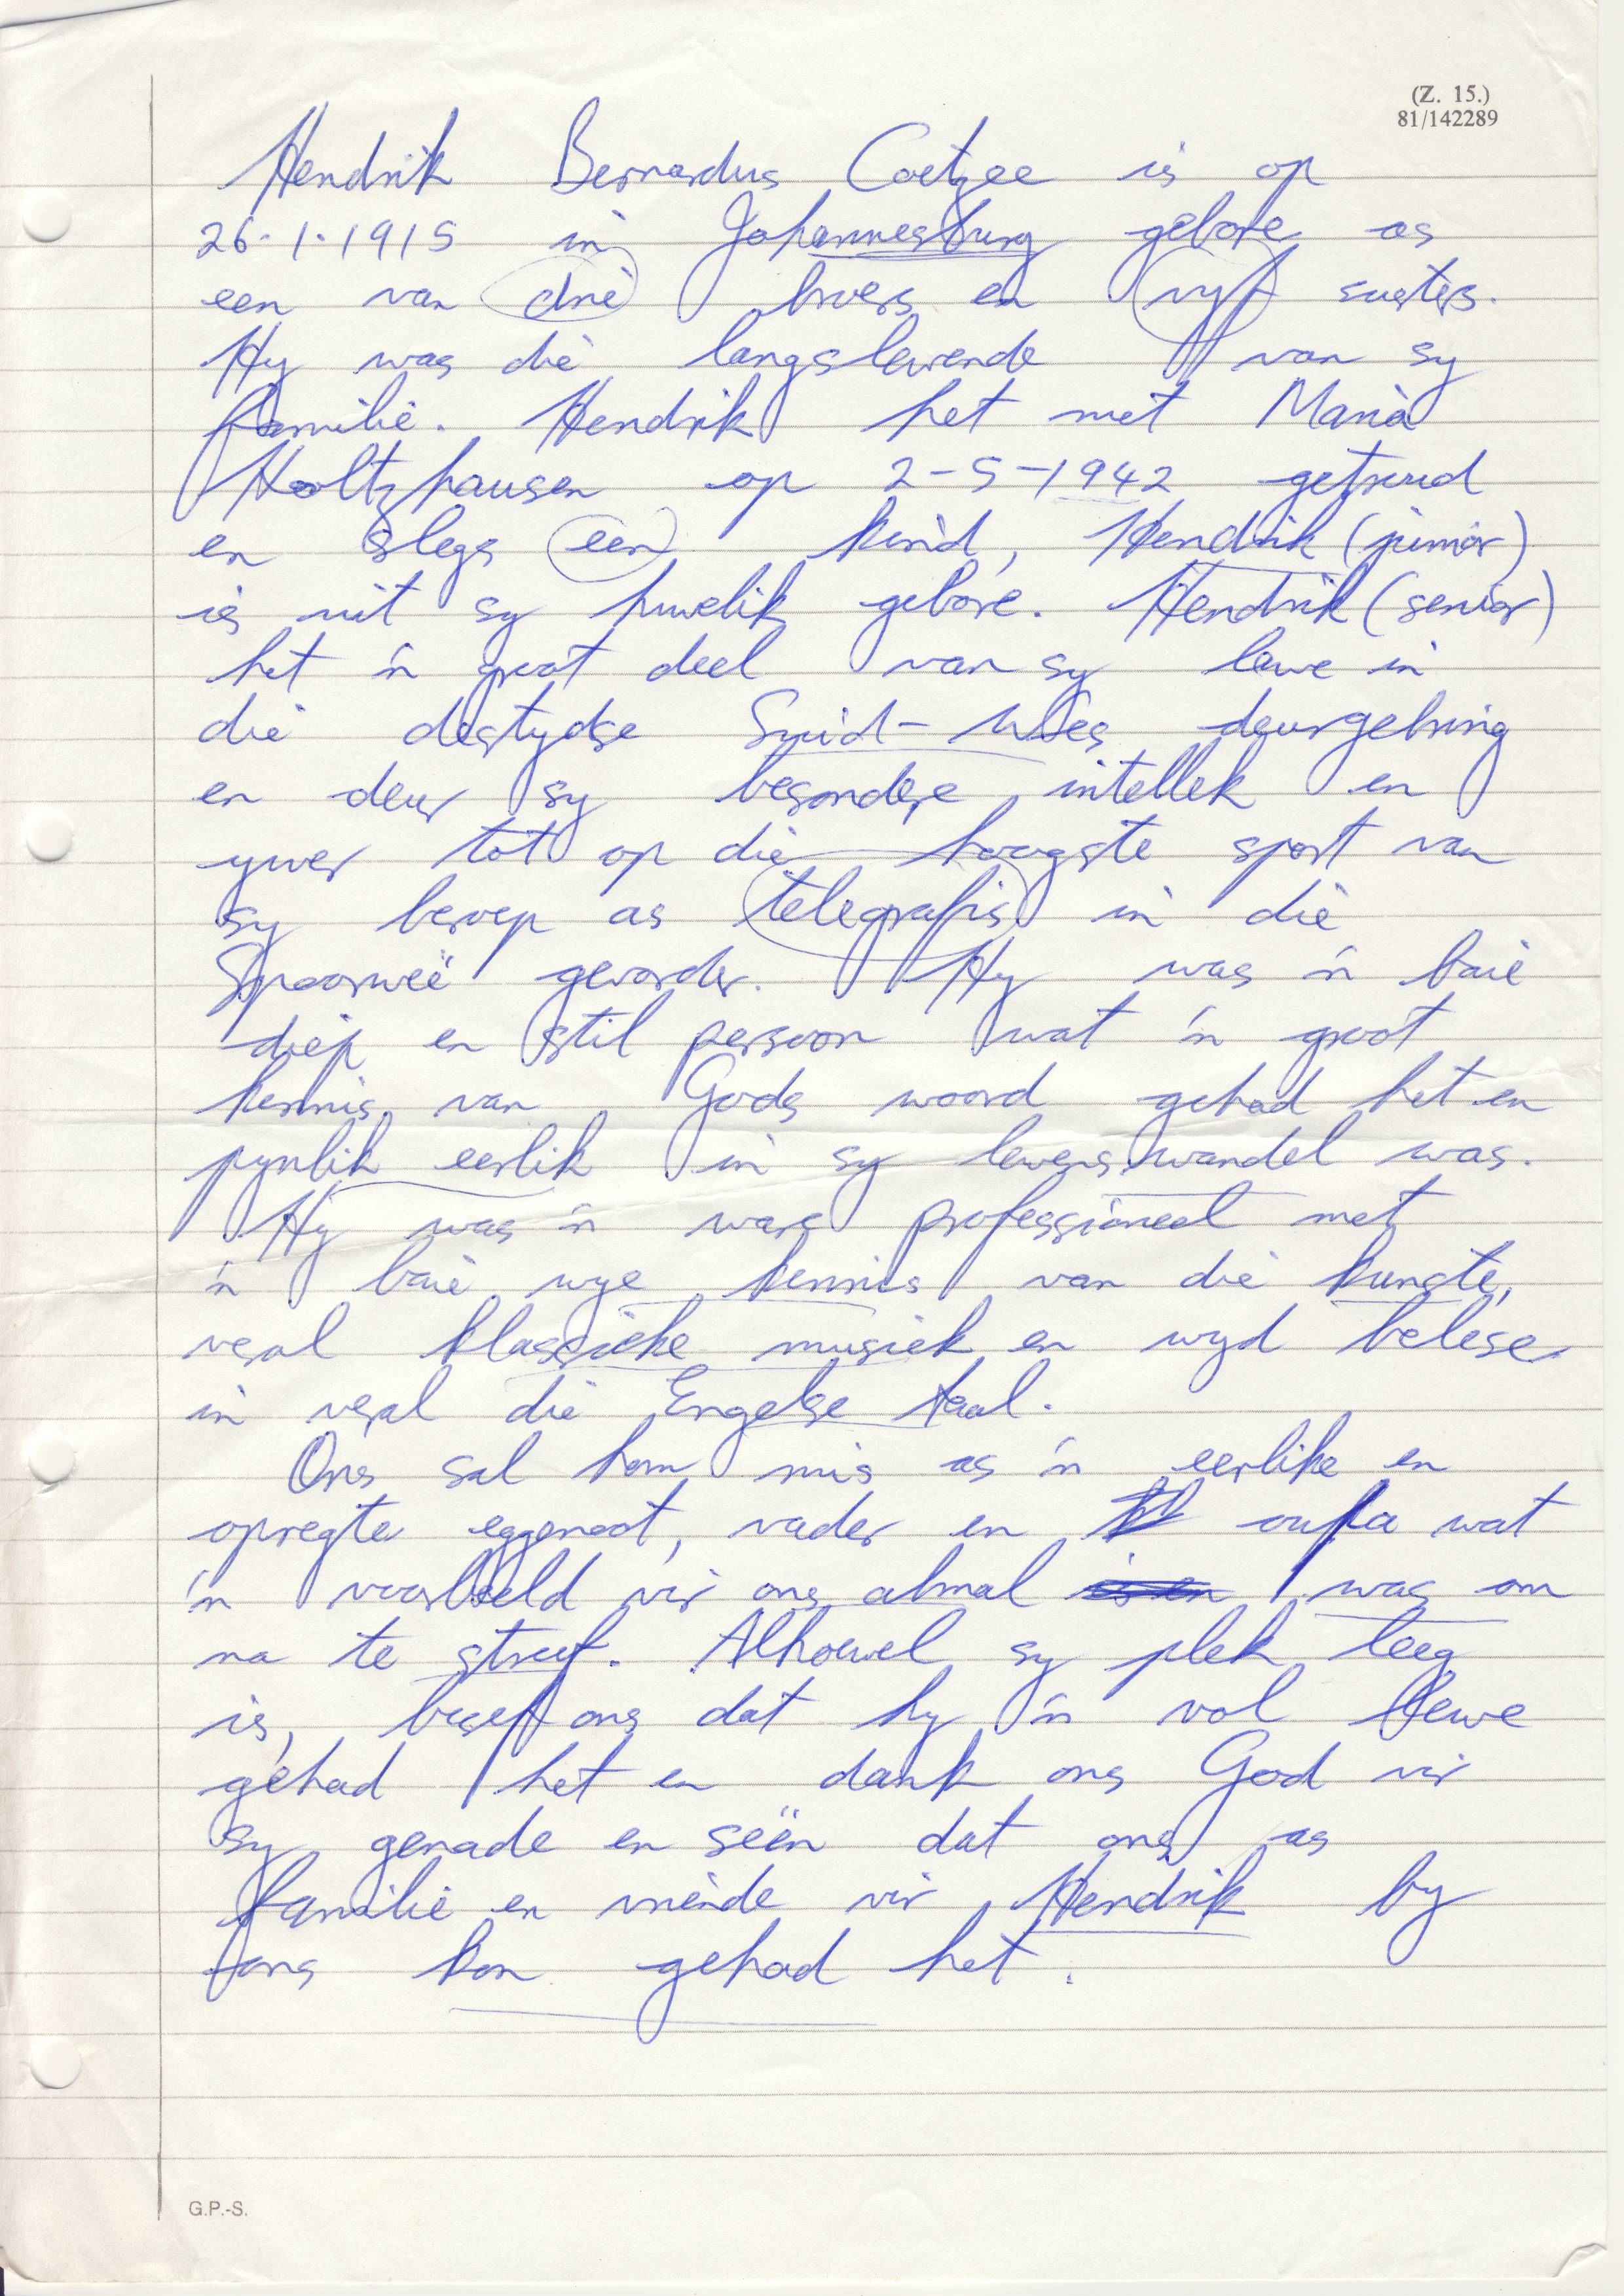 (Z. 15.)
81/142289
Hendrik Bernardus Coetzee is op
26.1.1915 in Johannesburg gebore as
een van drie broers en vyf susters.
Hy was die langslewende van sy
familie. Hendrik het met Maria
Holtzhausen op 2-5-1942 getroud
en slegs een kind, Hendrik (junior)
is uit sy huwelik gebore. Hendrik (senior)
het 'n groot deel van sy lewe in
die destydse Suid-Wes deurgebring
en deur sy besondere intellek en
ywer tot op die hoogste sport van
sy beroep as telegrafis in die
Spoorweë gevorder. Hy was 'n baie
diep en stil persoon wat 'n groot
kennis van Gods woord gehad het en
pynlik eerlik in sy lewenswandel was.
Hy was 'n ware professioneel met
'n baie wye kennis van die kunste,
veral klassieke musiek en wyd belese
in veral die Engelse taal.
Ons sal hom mis as 'n eerlike en
opregte eggenoot, vader en oupa wat
'n voorbeeld vir ons almal was om
na te streef. Alhoewel sy plek leeg
is, besef ons dat hy 'n vol lewe
gehad het en dank ons God vir
sy genade en seën dat ons as
familie en vriende vir Hendrik by
ons kon gehad het.
G.P.-S.